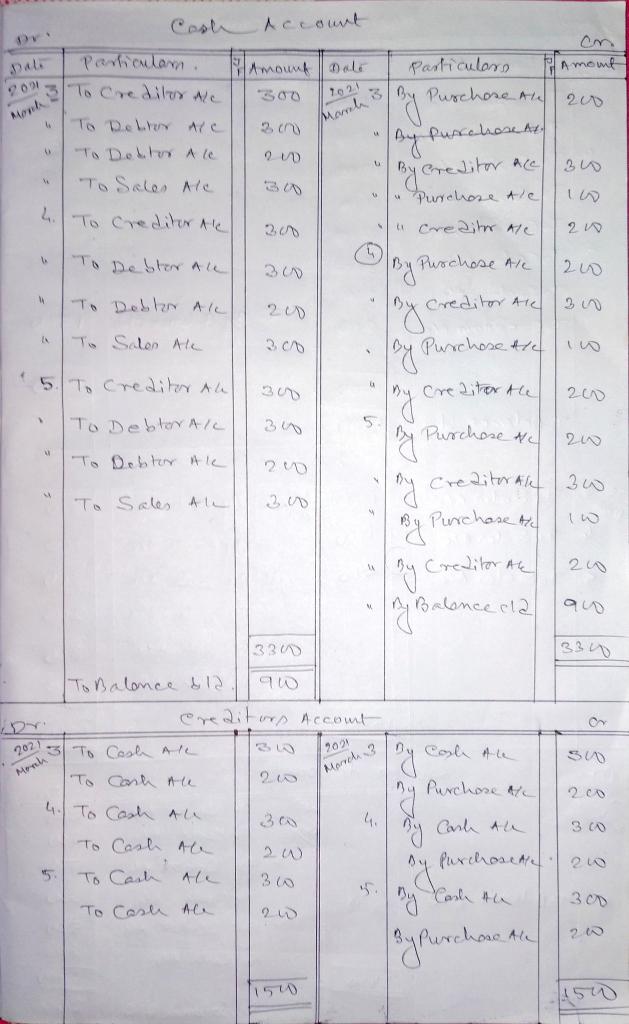 Cash Account
Dr. Cr.
Date Particulars. J.F Amount Date Particulars J.F Amount
2021 March 3 To Creditor A/c 300 2021 March 3 By Purchase A/c 200
" To Debtor A/c 300 " By Purchase A/c
" To Debtor A/c 200 " By Creditor A/c 300
" To Sales A/c 300 " " Purchase A/c 100
4. To Creditor A/c 300 " " Creditor A/c 200
" To Debtor A/c 300 4 By Purchase A/c 200
" To Debtor A/c 200 " By Creditor A/c 300
" To Sales A/c 300 " By Purchase A/c 100
5. To Creditor A/c 300 " By Creditor A/c 200
" To Debtor A/c 300 5. By Purchase A/c 200
" To Debtor A/c 200 " By Creditor A/c 300
" To Sales A/c 300 " By Purchase A/c 100
" By Creditor A/c 200
" By Balance c/d 900
3300 3300
To Balance b/d. 900
Creditors Account
Dr. Cr
2021 March 3 To Cash A/c 300 2021 March 3 By Cash A/c 300
To Cash A/c 200 By Purchase A/c 200
4. To Cash A/c 300 4. By Cash A/c 300
To Cash A/c 200 By Purchase A/c. 200
5. To Cash A/c 300 5. By Cash A/c 300
To Cash A/c 200 By Purchase A/c 200
1500 1500